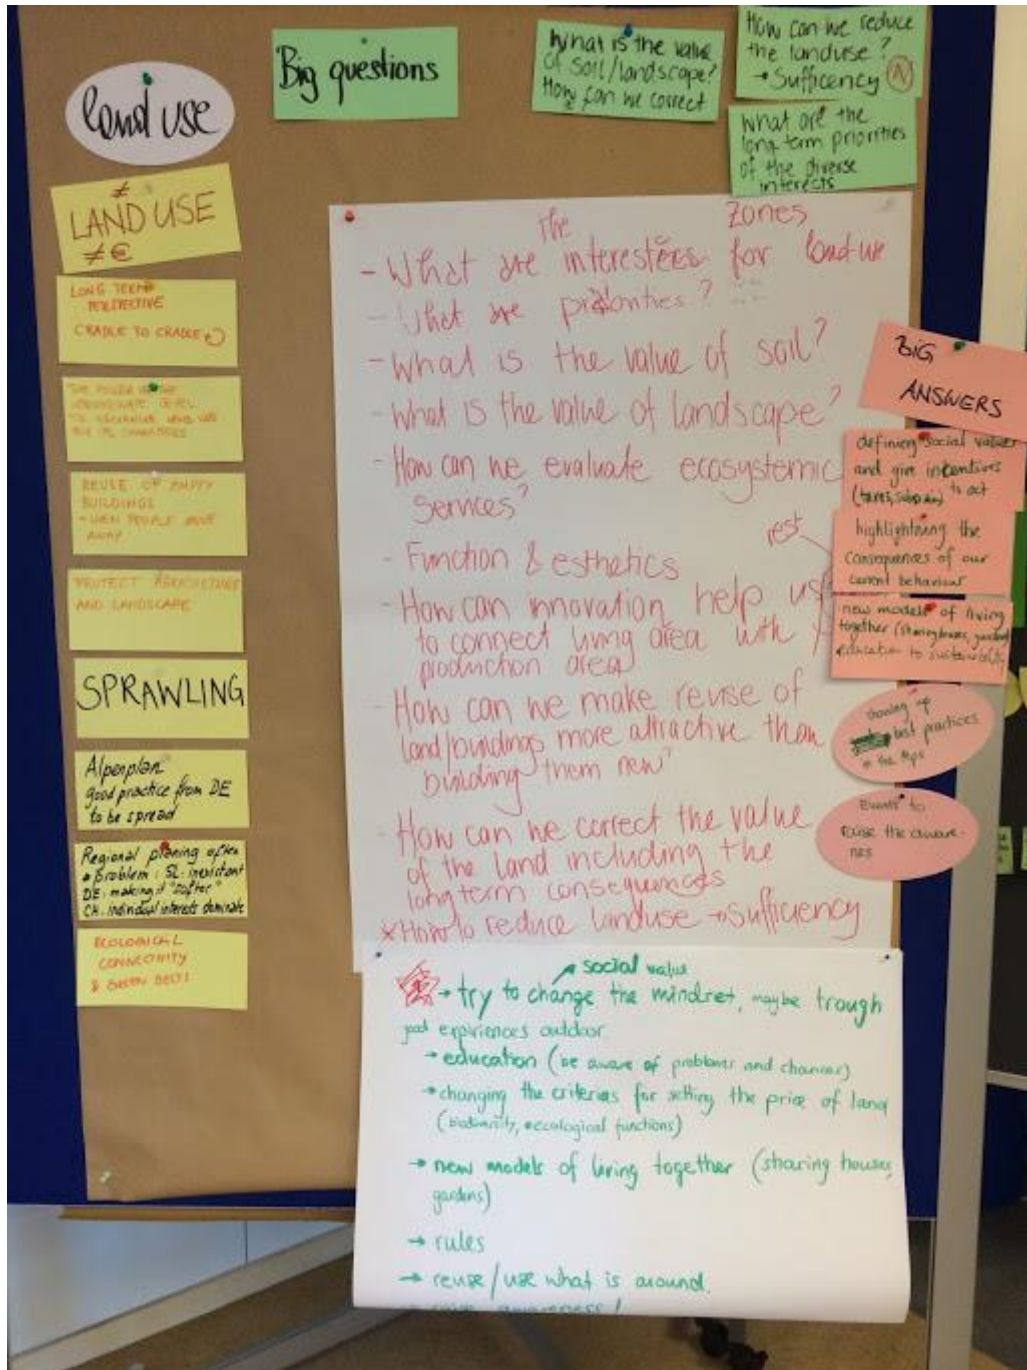 land use
Big questions
What is the value
of soil/landscape?
How can we correct
How can we reduce
the landuse?
→ Sufficency
What are the
long term priorities
of the diverse
interests
≠
LAND USE
≠ €
LONG TERM
PERSPECTIVE
CRADLE TO CRADLE
THE POWER OF THE
REUSE OF EMPTY
BUILDINGS
- WHEN PEOPLE MOVE
AWAY
PROTECT AGRICULTURE
AND LANDSCAPE
SPRAWLING
Alpenplan
good practice from DE
to be spread
Regional planing often
a problem: SL: inexistant
DE: making it "softer"
CH: individual interests dominate
ECOLOGICAL
CONNECTIVITY
& GREEN BELTS
The Zones
- What are interestees for land-use
- What are priorities?
- What is the value of soil?
- What is the value of landscape?
- How can we evaluate ecosystemic
services?
- Function & esthetics
- How can innovation help us
to connect living area with
production area
- How can we make reuse of
land/buildings more attractive than
building them new?
- How can we correct the value
of the land including the
long term consequences
* How to reduce landuse → sufficiency
rest
BIG
ANSWERS
defining social values
and give incentives
(taxes, subsidies) to act
highlightning the
consequences of our
current behaviour
new models of living
together (sharing houses, gardens)
education to sustainability
showing up
best practices
in the Alps
Events to
raise the aware-
nes
social value
→ try to change the mindset, maybe trough
good expiriences outdoor.
→ education (be aware of problems and chances)
→ changing the criterias for setting the price of land
(biodiversity, eccological functions)
→ new models of living together (sharing houses,
gardens)
→ rules
→ reuse/use what is around.
awareness!